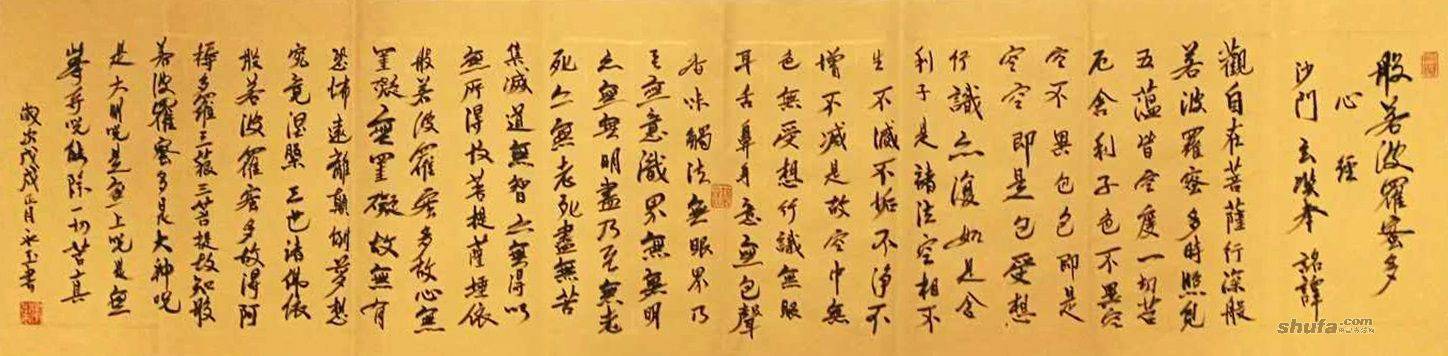 般若波羅蜜多
心經
沙門玄奘奉詔譯
觀自在菩薩行深般
若波羅蜜多時照見
五蘊皆空度一切苦
厄舍利子色不異空
空不異色色即是
空空即是色受想
行識亦復如是舍
利子是諸法空相不
生不滅不垢不淨不
增不減是故空中無
色無受想行識無眼
耳舌鼻身意無色聲
香味觸法無眼界乃
至無意識界無無明
亦無無明盡乃至無老
死亦無老死盡無苦
集滅道無智亦無得以
無所得故菩提薩埵依
般若波羅蜜多故心無
罣礙無罣礙故無有
恐怖遠離顛倒夢想
究竟涅槃三世諸佛依
般若波羅蜜多故得阿
耨多羅三藐三菩提故知般
若波羅蜜多是大神咒
是大明咒是無上咒是無
等等咒能除一切苦真
歲次戊戌正月玉書
shufa.com